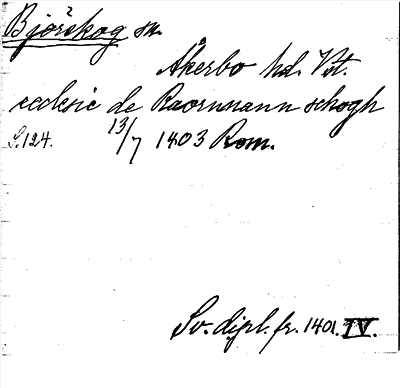 Björskog sn.
Åkerbo hd. Vst.
ecclesie de Raornmann schogh
S. 124. 13/7 1403 Rom.
Sv. dipl. fr. 1401. IV.